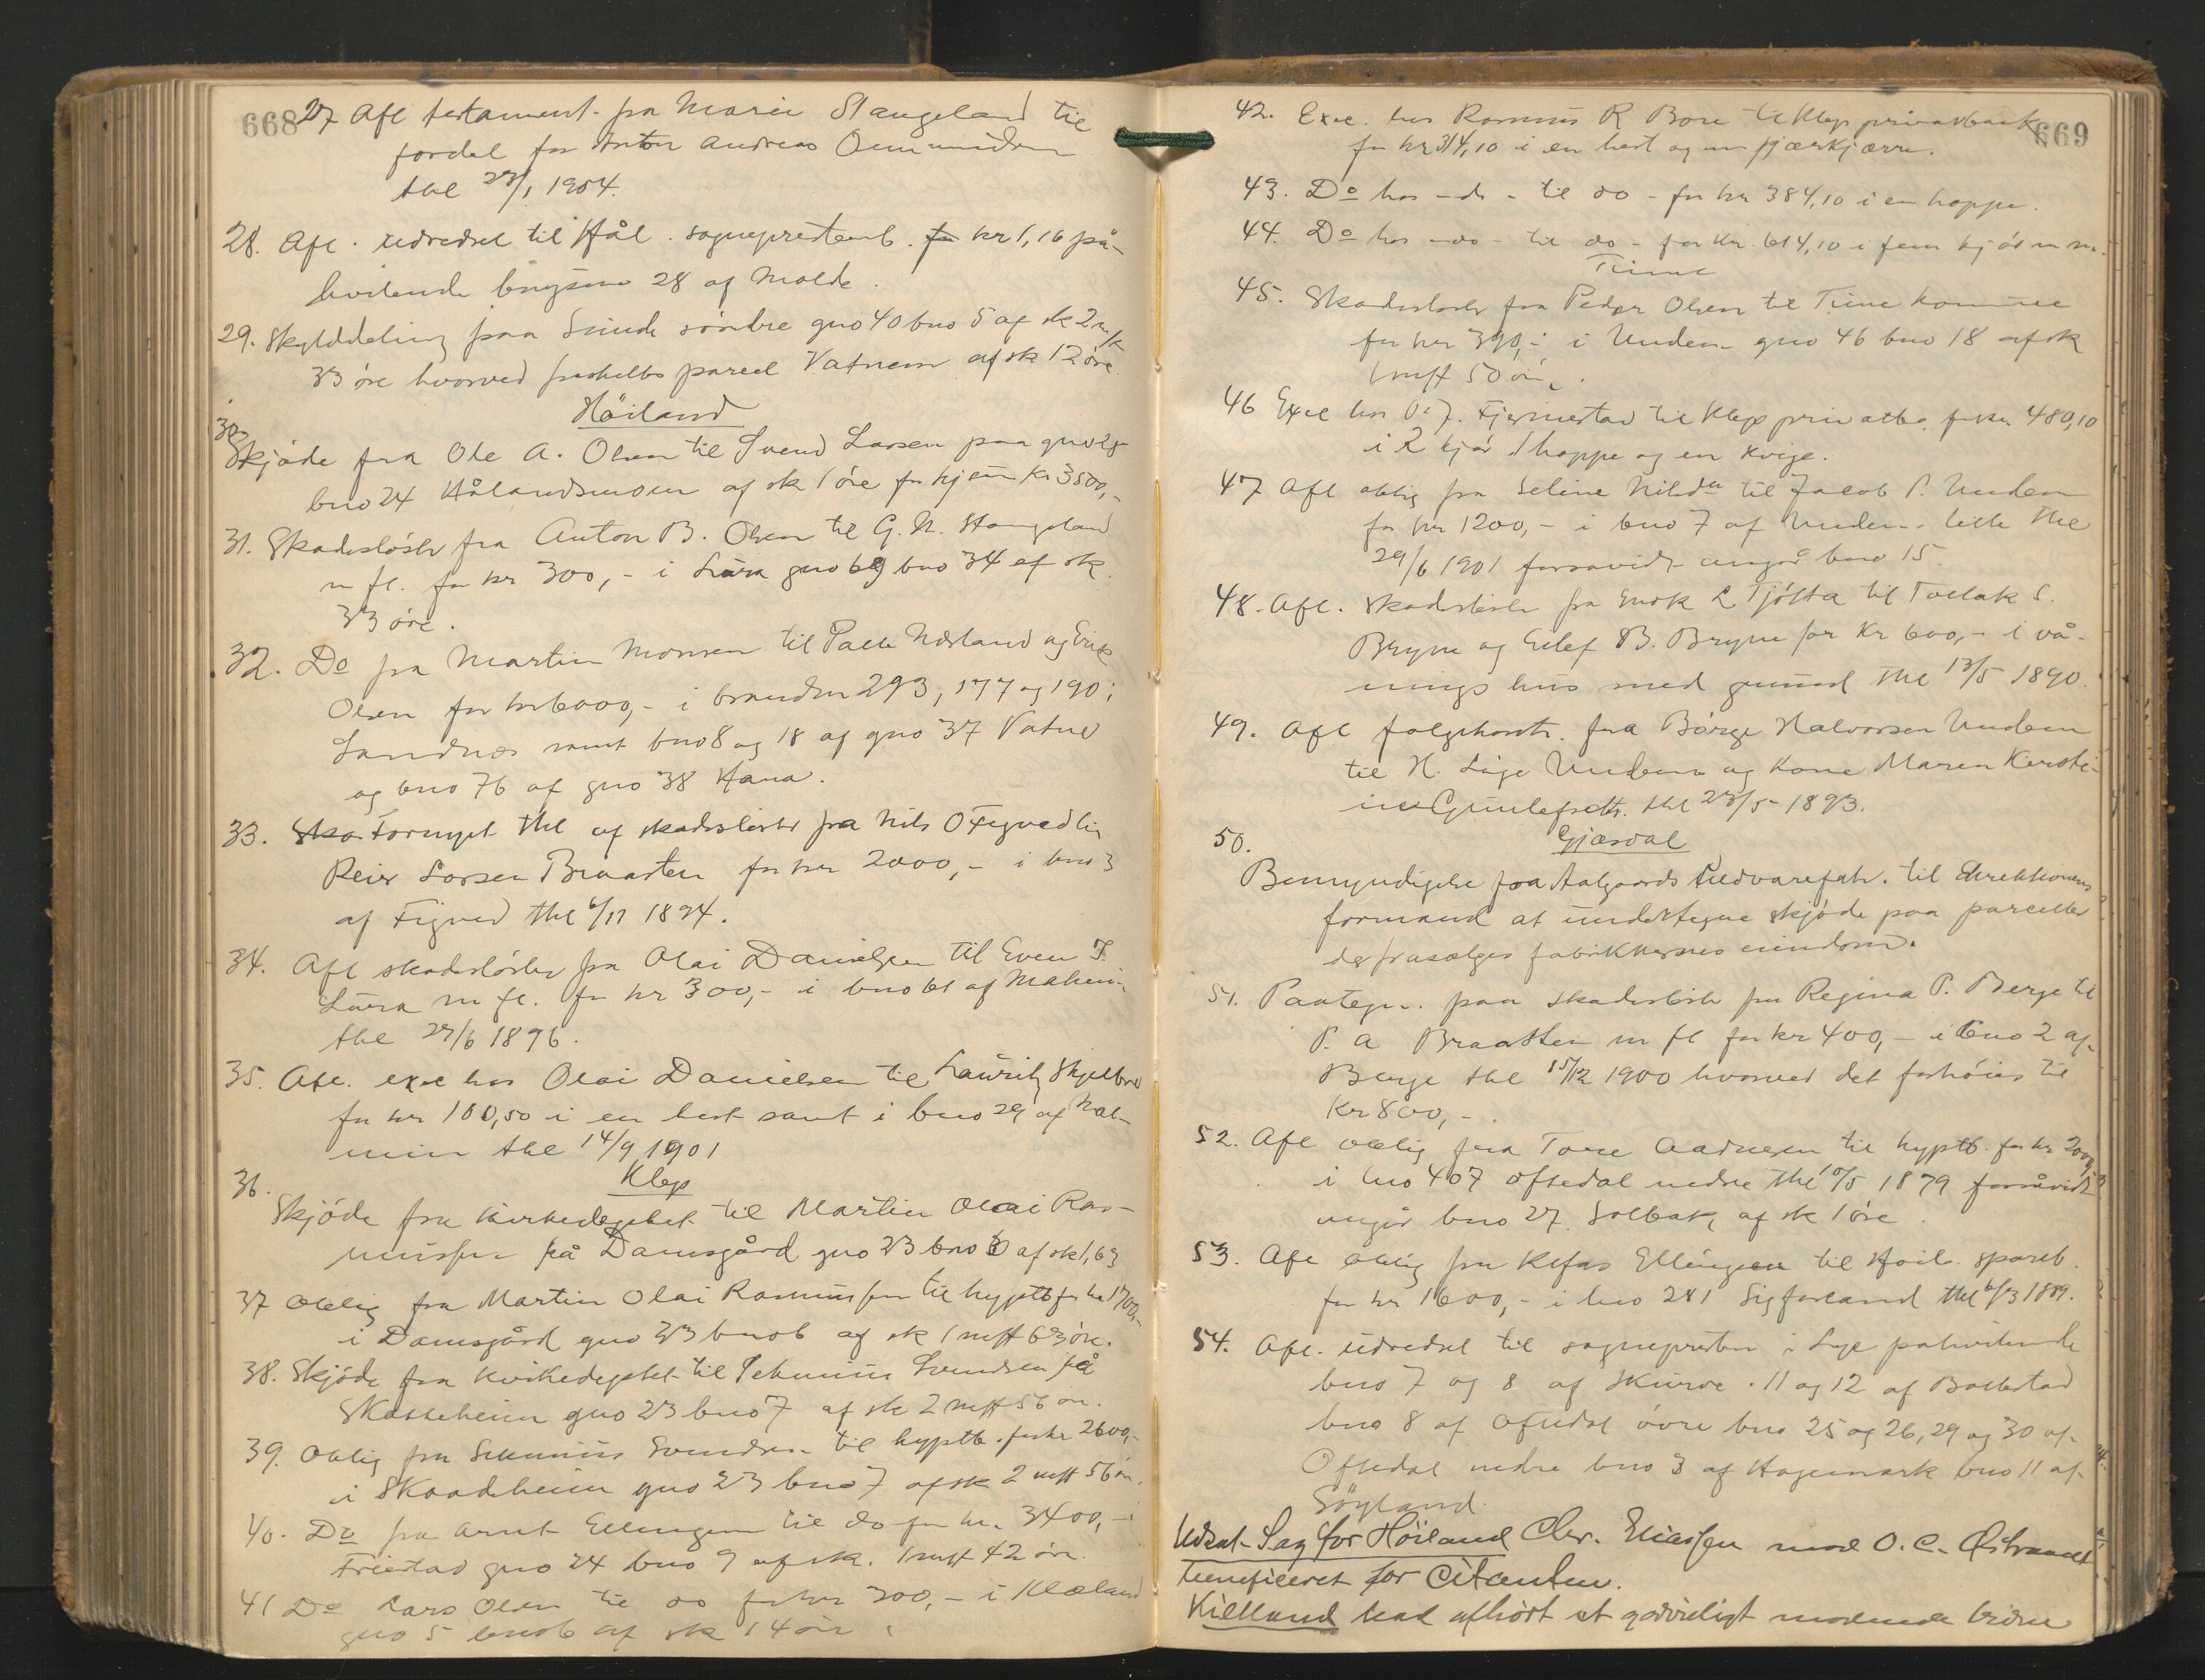 668
27 Afl testament. fra Marie Stangeland til
fordel for Anton Andreas Ommundsen
thl 23/1 1904.
28. Afl. udredsel til Hål. sogneprestemb. for kr 1,16 på-
hvilende brugsno 28 af Molde.
29. Skylddeling paa Sunde söndre gno 40 bno 5 af sk 2 mk
33 öre hvorved fraskiltes parcel Vatnem af sk 12 öre.
Höiland
30. Skjöde fra Ole A. Olsen til Svend Larsen paa gno
bno 24 Hålandsmoen af sk 1 öre for kjöm Kr 3500,-
31. Skadeslösbr fra Anton B. Olsen til G. N. Stangeland
m fl. for kr 300,- i Lura gno 69 bno 34 af sk.
33 öre.
32. Do fra Martin Monsen til Palle Næsland og Eirik
Olsen for kr 6000,- i brandno 293, 177 og 190 i
Sandnes samt bno 8 og 18 af gno 37 Vatne
og bno 76 af gno 38 Hana.
33. Ska Fornyet thl af skadeslösbr fra Nils O Figved til
Reier Larsen Braasten for kr 2000,- i bno 3
af Figved thl 6/11 1894.
34. Afl skadeslösbr fra Olai Danielsen til Even T.
Lura m fl. for kr 300,- i bno 61 af Malmin
thl 27/6 1896.
35. Afl. exe hos Olai Danielsen til Lauritz Skjelbred
for kr 100,50 i en hest samt i bno 29 af Mal-
min thl 14/9 1901
Klep
36. Skjöde fra Kirkedept til Martin Olai Ras-
mussen på Damsgård gno 23 bno 6 af sk 1,63
37 Oblig fra Martin Olai Rasmussen til hyptb for kr 1700,-
i Damsgård gno 23 bno 6 af sk 1 mk 63 öre.
38. Skjöde fra Kirkedeptet til Sekunius Svendsen på
Skasseheim gno 23 bno 7 af sk 2 mk 56 ör.
39. Oblig fra Sekunius Svendsen til hyptb. for kr 2600,-
i Skaadeheim gno 23 bno 7 af sk 2 mk 56 ör.
40. Do fra Arnt Ellingsen til do for kr. 3400,- i
Friestad gno 24 bno 9 af sk. 1 mk 42 ör.
41 Do Lars Olsen til do for kr 300,- i Klæland
gno 5 bno 6 af sk 14 ör.
669
42. Exe. hos Rasmus R Bore til Klep privatbank
for kr 314,10 i en hest og en fjærkjærre.
43. Do hos -do- til do - for kr 384,10 i en hoppe.
44. Do hos -do- til do - for kr. 614,10 i fem kjör m m.
Time
45. Skadeslösbr fra Peder Olsen til Time kommune
for kr 390,- i Undem gno 46 bno 18 af sk
1 mk 50 ör.
46 Exe hos O. J. Fjermestad til Klep privatb. for kr 480,10
i 2 kjör 1 hoppe og en kvige.
47 Afl oblig fra Seline Nilsdtr til Jacob P. Undem
for kr 1200,- i bno 7 af Undem lille thl
29/6 1901 forsaavidt angår bno 15.
48. Afl. skadeslösbr fra Enok L Tjötta til Tollak S.
Bryne og Eilef B. Bryne for Kr 600,- i vå-
nings hus med grund thl 13/5 1890.
49. Afl folgekontr. fra Börge Halvorsen Undem
til H. Lige Undem og kone Maren Kersti-
ine Gunlefsdtr. thl 23/5 1893.
Gjæsdal
50.
Bemyndigelse fra Aalgaards Uldvarefabr. til direktionens
formand at undertegne skjöde paa parceller
der frasælges fabrikkernes eiendom.
51. Paategn. paa skadeslösbr fra Regina P. Berge til
P. A Braasten m fl for kr 400,- i bno 2 af
Berge thl 15/12 1900 hvorved det forhöies til
Kr 800,-
52. Afl oblig fra Tore Aadnesen til hyptb. for kr 2000,-
i lno 407 Oftedal nedre thl 10/5 1879 forsåvidt
angår bno 27 Solbak af sk 1 öre.
53. Afl oblig fra Kefas Ellingsen til Höil. spareb.
for kr 1600,- i lno 281 Sigfarland thl 6/3 1889.
54. Afl. udredsel til sognepresten i Lye påhvilende
bno 7 og 8 af Skurve. 11 og 12 af Bollestad
bno 8 af Oftedal övre bno 25 og 26, 29 og 30 af
Oftedal nedre bno 3 af Hagemark bno 11 af
Söyland.
Udsat Sag for Höiland Chr. Eliassen mod O. C. Östraadt
beneficeret for Citanten.
Kielland lod afhört et godvilligt mødende Vidne